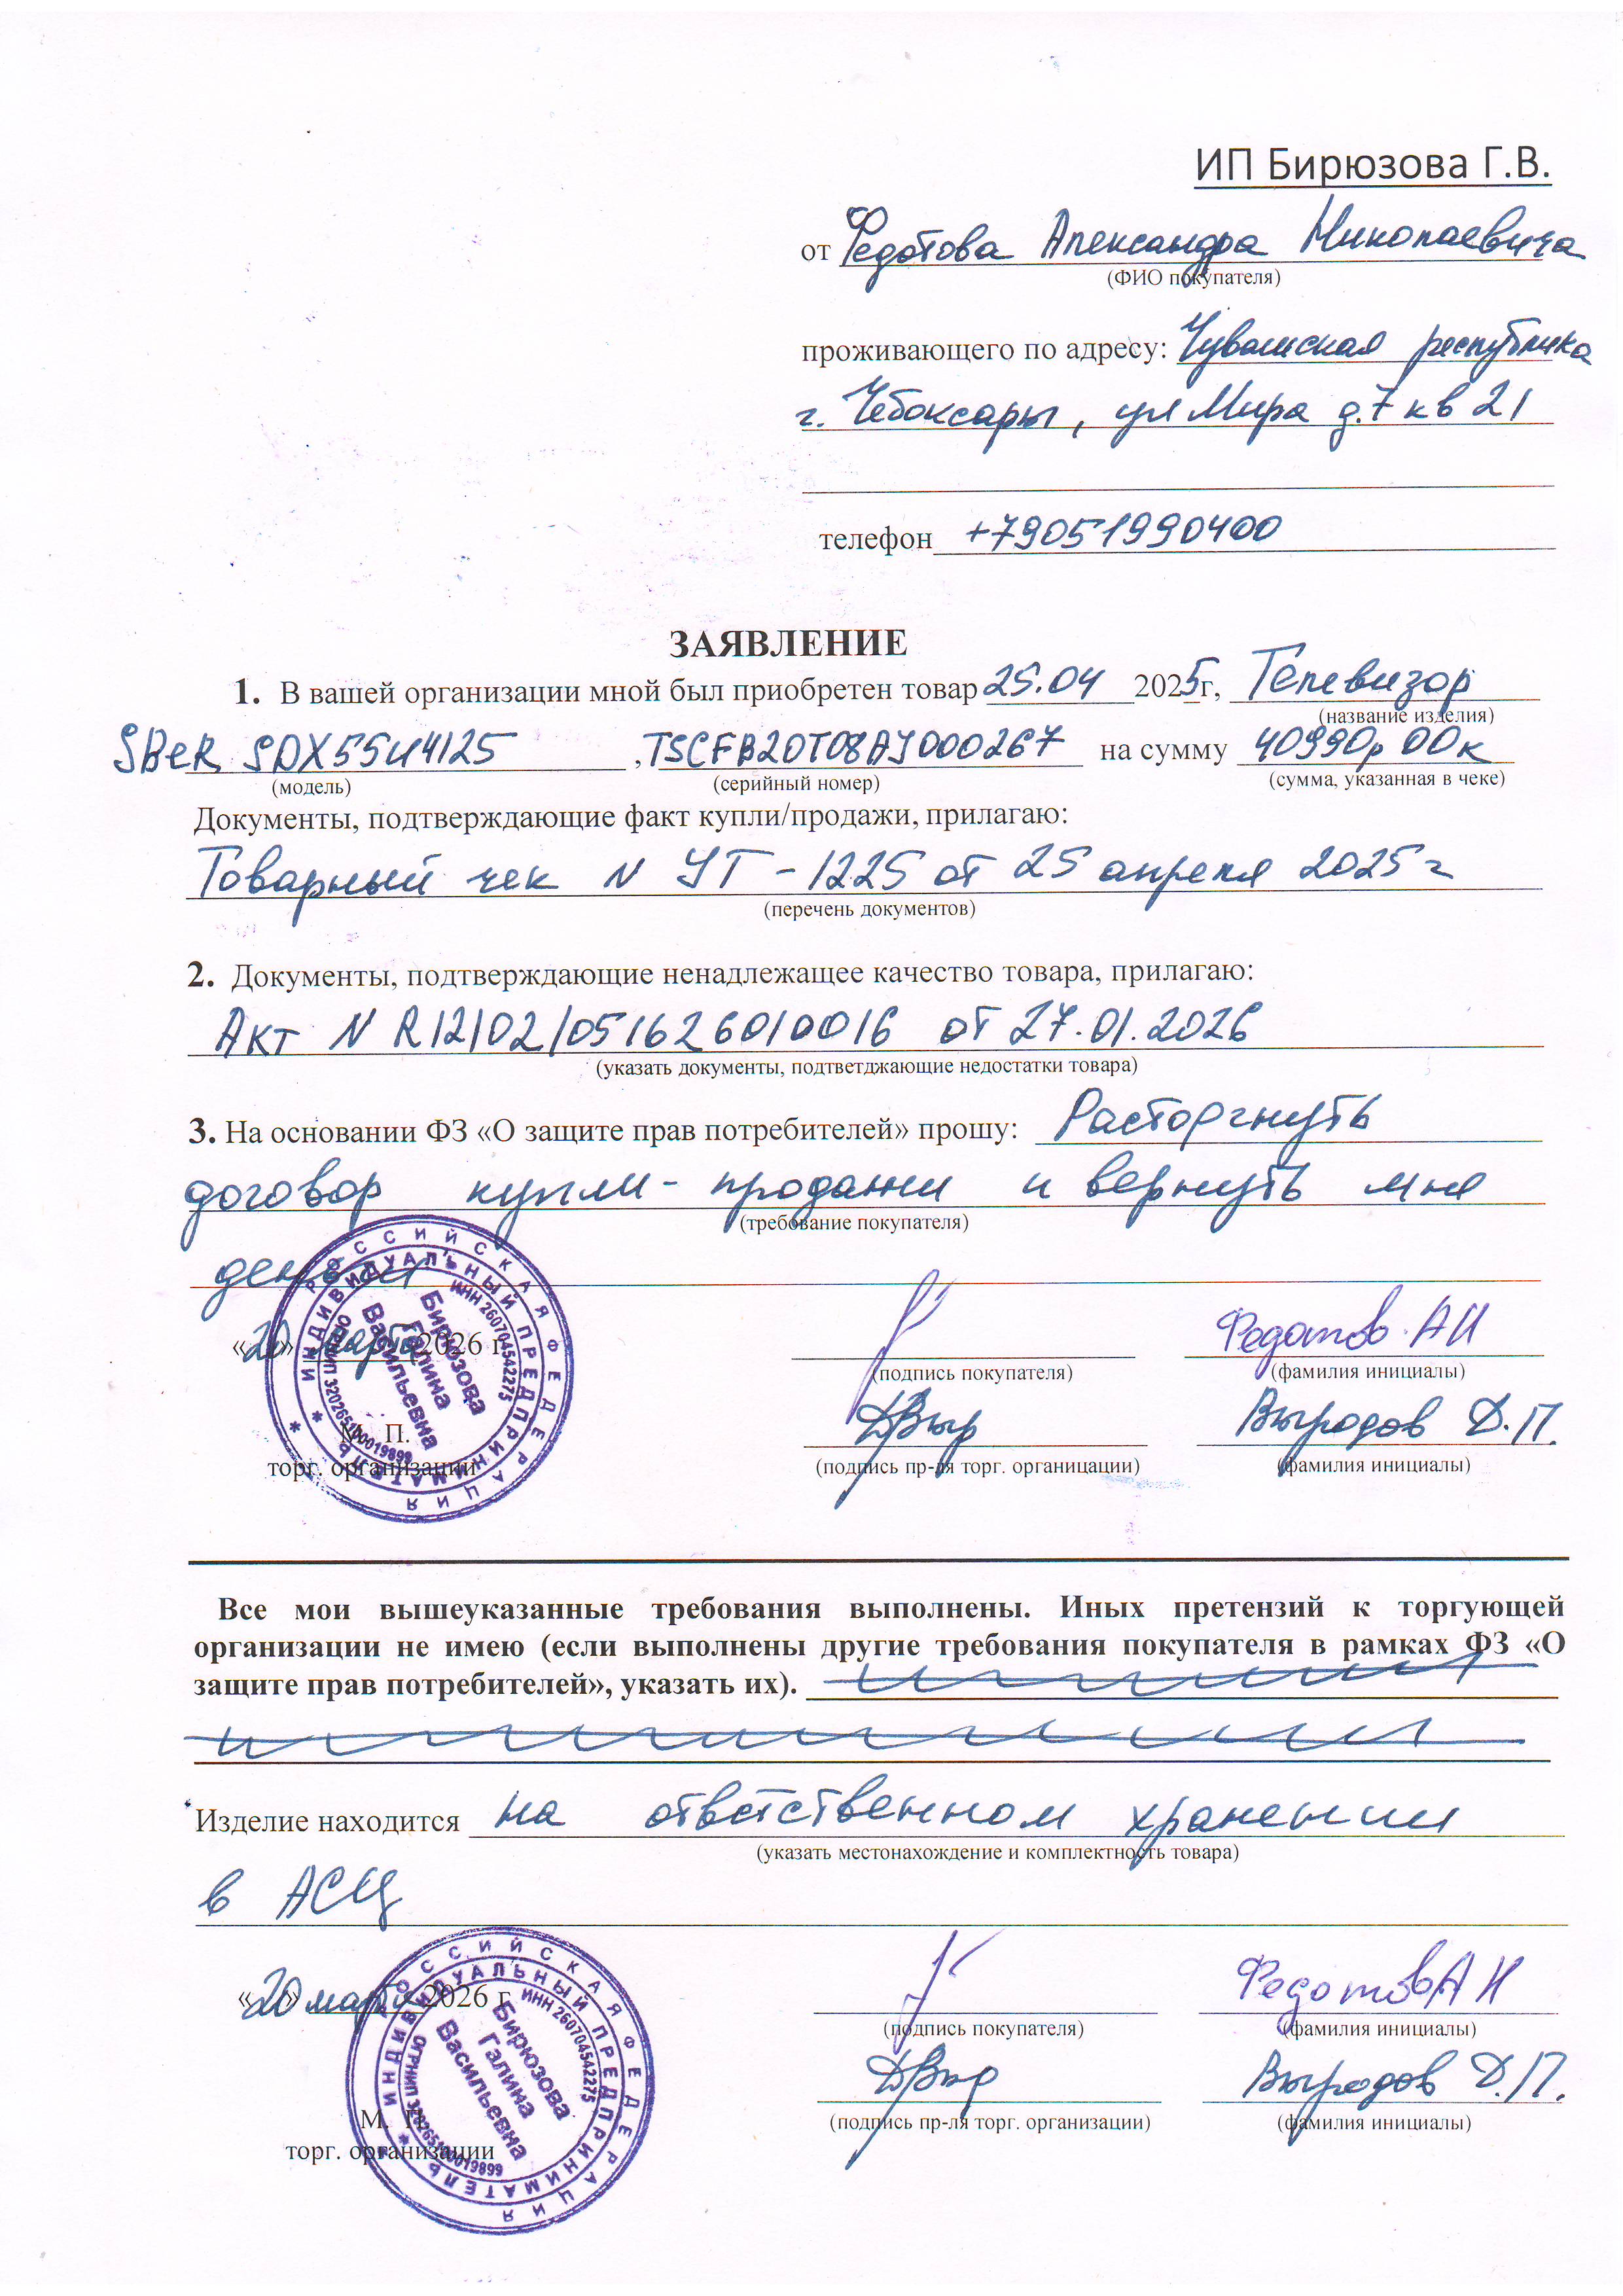 ИП Бирюзова Г.В.
от Федотова Александра Николаевича
(ФИО покупателя)
проживающего по адресу: Чувашская республика
г. Чебоксары, ул Мира д.7 кв 21
телефон +79051990400
ЗАЯВЛЕНИЕ
1. В вашей организации мной был приобретен товар 25.04 2025г, Телевизор
(название изделия)
SBeR SDX55U4125 , TSCFB20T08AJ000267 на сумму 40990р 00к
(модель) (серийный номер) (сумма, указанная в чеке)
Документы, подтверждающие факт купли/продажи, прилагаю:
Товарный чек N УТ-1225 от 25 апреля 2025 г
(перечень документов)
2. Документы, подтверждающие ненадлежащее качество товара, прилагаю:
Акт N R12/02/051626010016 от 27.01.2026
(указать документы, подтветджающие недостатки товара)
3. На основании ФЗ «О защите прав потребителей» прошу: Расторгнуть
договор купли-продажи и вернуть мне
(требование покупателя)
деньги
«20» марта 2026 г. Федотов АН
(подпись покупателя) (фамилия инициалы)
ДВыр Выродов Д.П.
М. П.
торг. организации (подпись пр-ля торг. органицации) (фамилия инициалы)
РОССИЙСКАЯ ФЕДЕРАЦИЯ
ИНДИВИДУАЛЬНЫЙ ПРЕДПРИНИМАТЕЛЬ
ИНН 260704542275
Бирюзова
Галина
Васильевна
ОГРНИП 320265100019899
Все мои вышеуказанные требования выполнены. Иных претензий к торгующей
организации не имею (если выполнены другие требования покупателя в рамках ФЗ «О
защите прав потребителей», указать их).
Изделие находится на ответственном хранении
(указать местонахождение и комплектность товара)
в АСЦ
«20» марта 2026 г. Федотов АН
(подпись покупателя) (фамилия инициалы)
Выродов Д.П.
М. П. (подпись пр-ля торг. организации) (фамилия инициалы)
торг. организации
РОССИЙСКАЯ ФЕДЕРАЦИЯ
ИНДИВИДУАЛЬНЫЙ ПРЕДПРИНИМАТЕЛЬ
ИНН 260704542275
Бирюзова
Галина
Васильевна
ОГРНИП 320265100019899